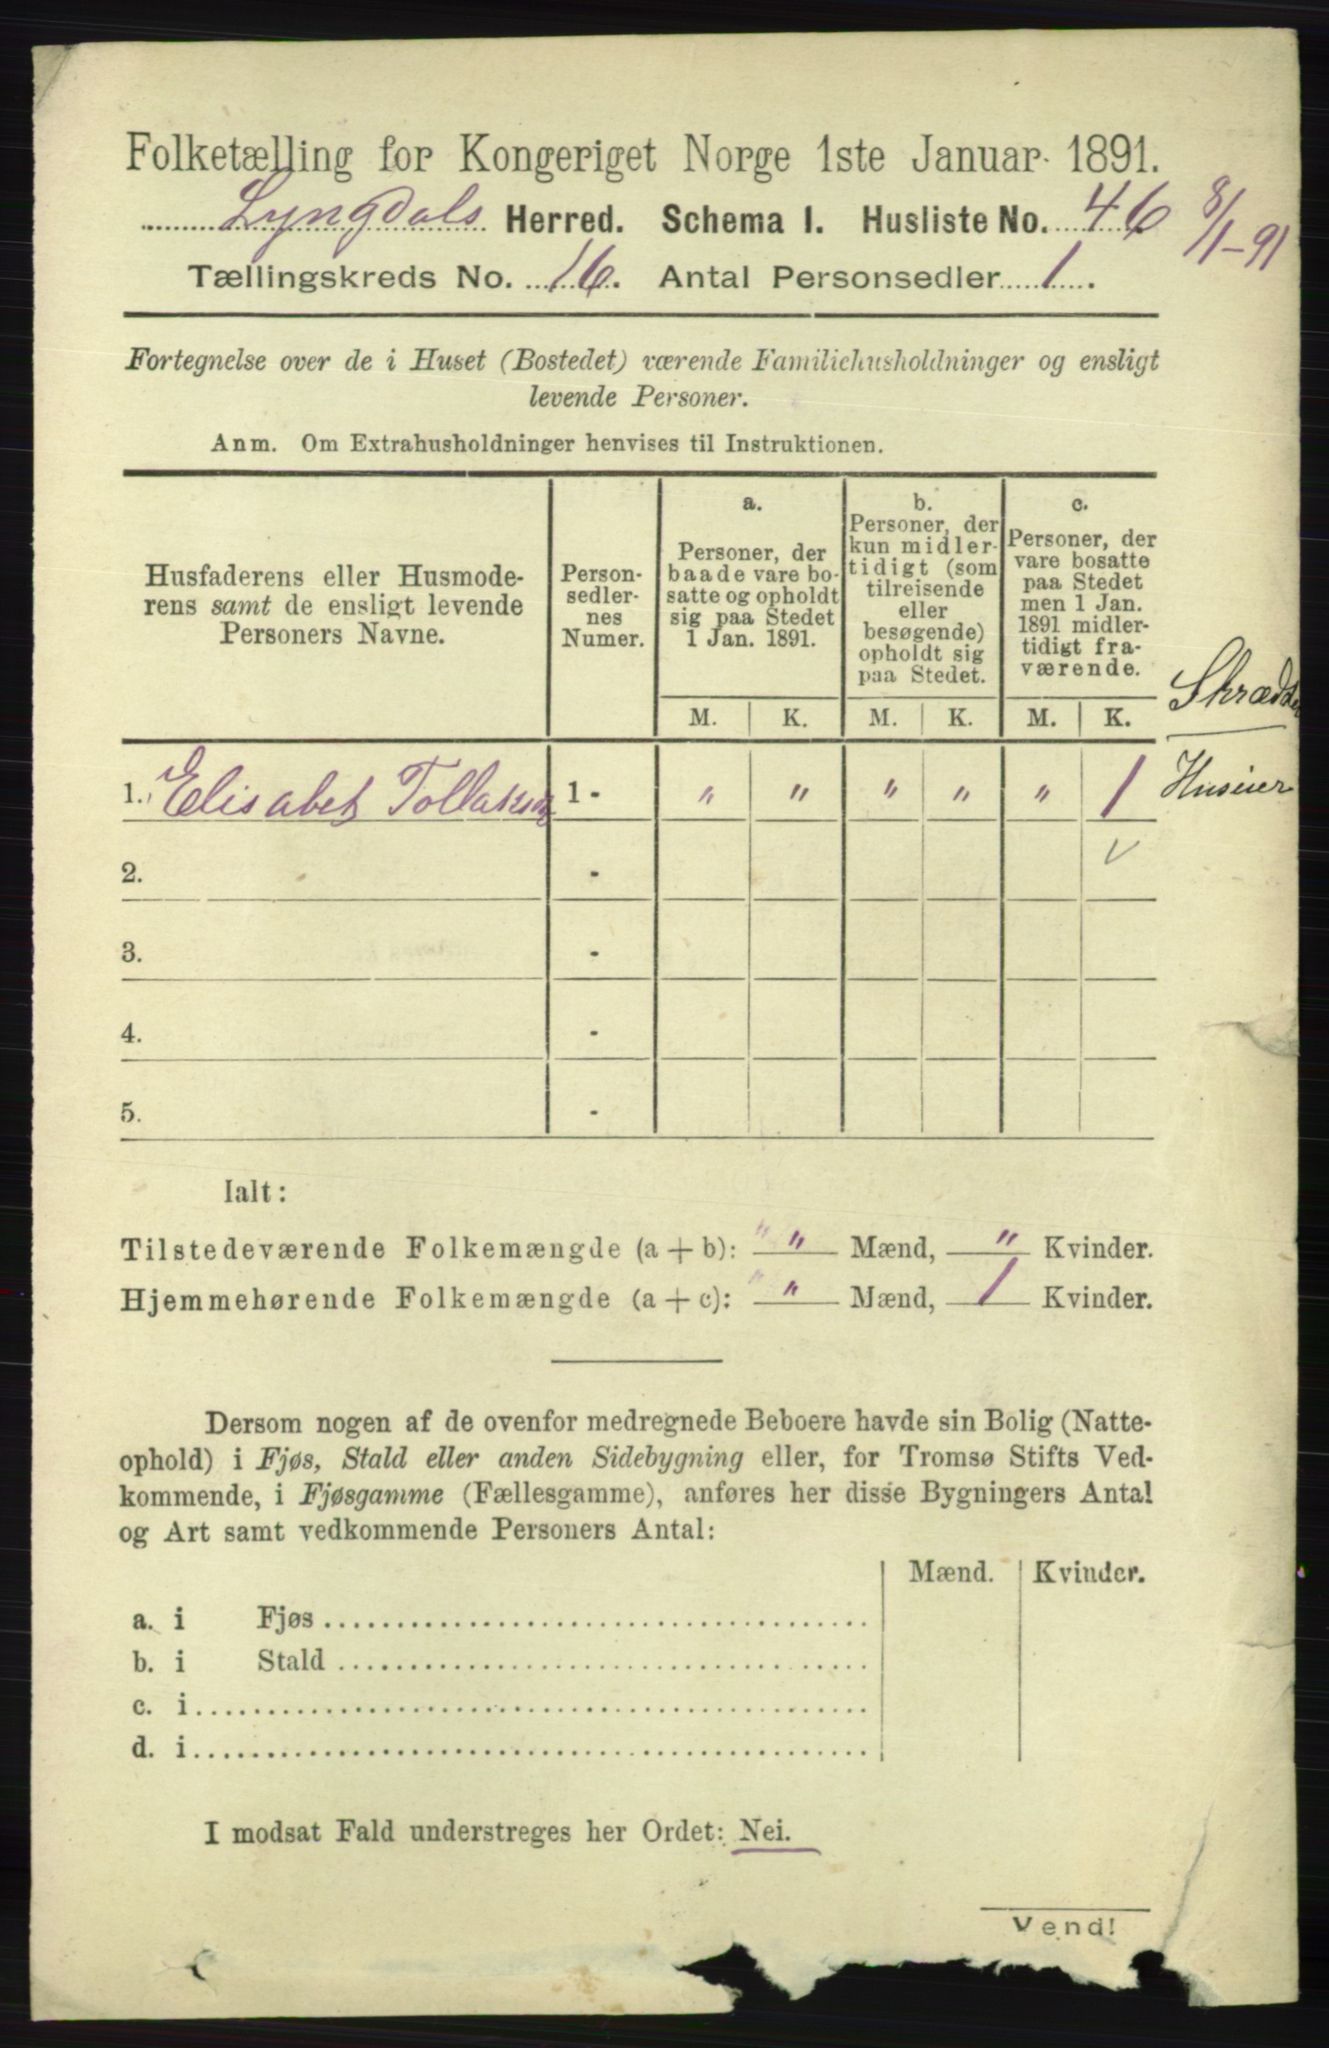 Folketælling for Kongeriget Norge 1ste Januar 1891.
Lyngdals Herred. Schema I. Husliste No. 46
8/1-91
Tællingskreds No. 16. Antal Personsedler 1.
Fortegnelse over de i Huset (Bostedet) værende Familiehusholdninger og ensligt
levende Personer.
Anm. Om Extrahusholdninger henvises til Instruktionen.
Husfaderens eller Husmode-
rens samt de ensligt levende
Personers Navne.
Person-
sedler-
nes
Numer.
a.
Personer, der
baade vare bo-
satte og opholdt
sig paa Stedet
1 Jan. 1891.
b.
Personer, der
kun midler-
tidigt (som
tilreisende
eller
besøgende)
opholdt sig
paa Stedet.
c.
Personer, der
vare bosatte
paa Stedet
men 1 Jan.
1891 midler-
tidigt fra-
værende.
M. K. M. K. M. K.
1. Elisabet 1 - " " " " " 1
Husier
2. -
3. -
4. -
5. -
Ialt:
Tilstedeværende Folkemængde (a + b): " " Mænd, " Kvinder.
Hjemmehørende Folkemængde (a + c): " " Mænd, 1 Kvinder.
Dersom nogen af de ovenfor medregnede Beboere havde sin Bolig (Natte-
ophold) i Fjøs, Stald eller anden Sidebygning eller, for Tromsø Stifts Ved-
kommende, i Fjøsgamme (Fællesgamme), anføres her disse Bygningers Antal
og Art samt vedkommende Personers Antal:
Mænd. Kvinder.
a. i Fjøs
b. i Stald
c. i
d. i
I modsat Fald understreges her Ordet: Nei.
Vend!